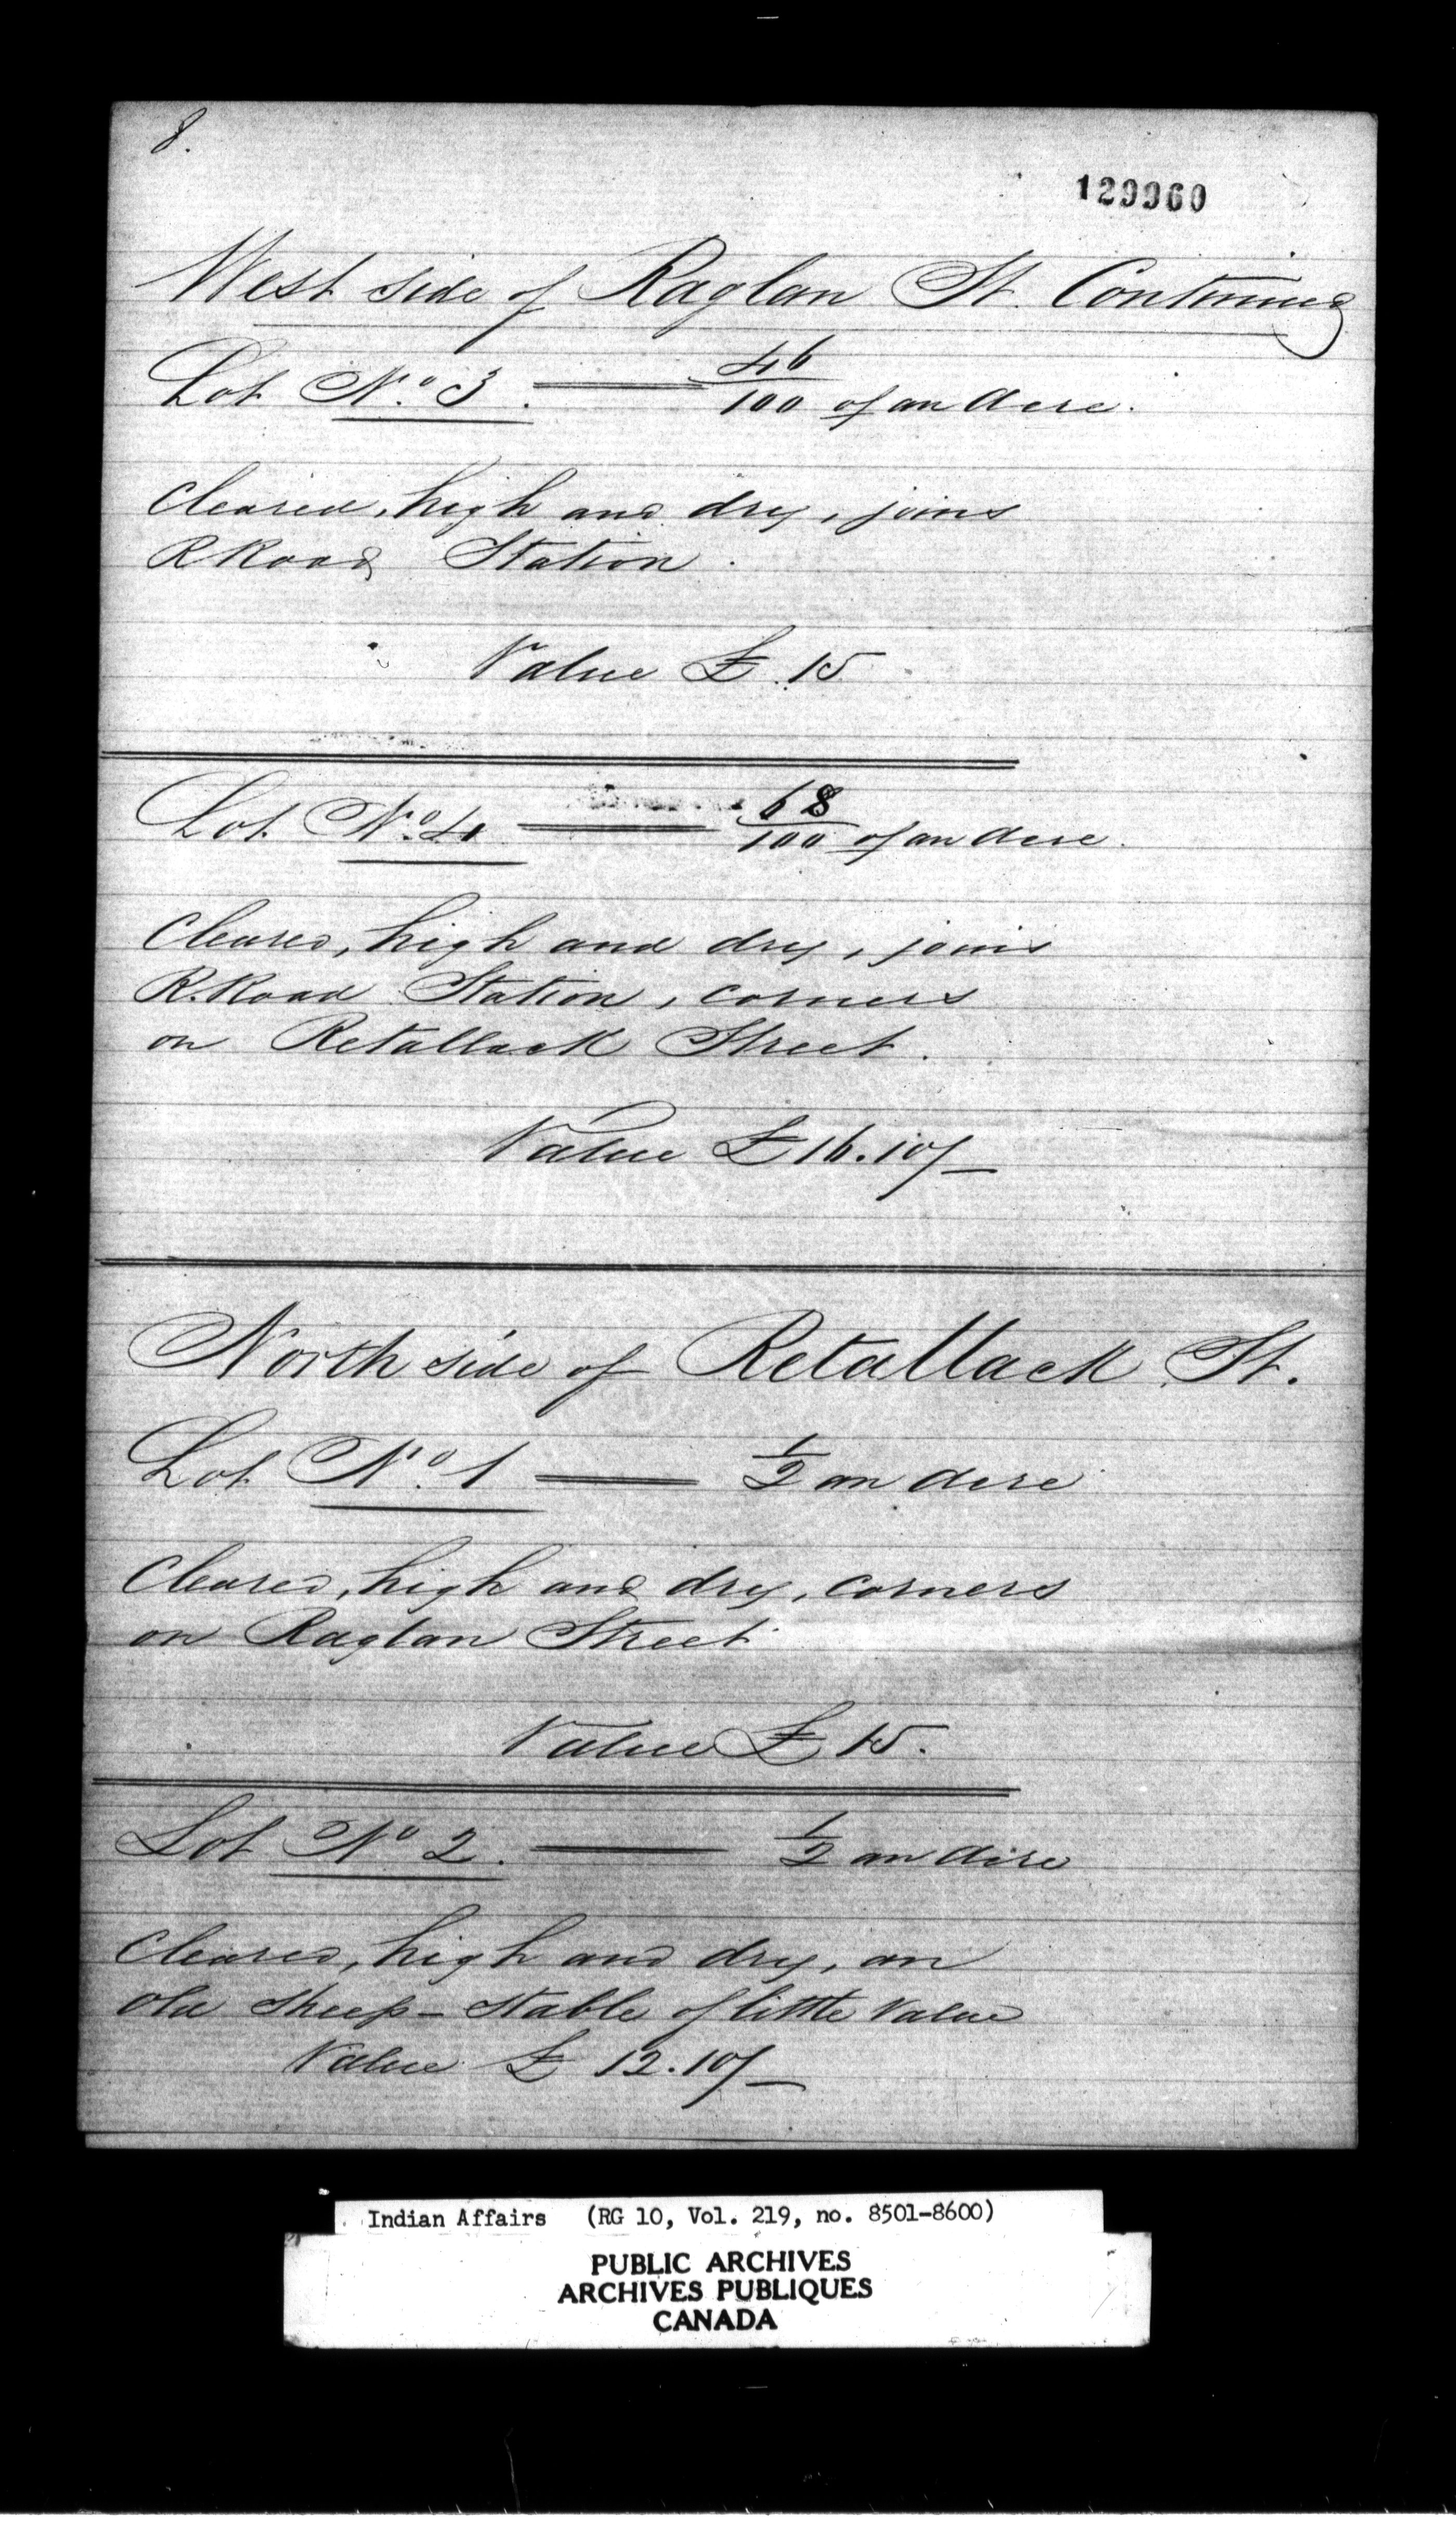 8.
129960
West side of Raglan St. Continued
Lot No. 3. 46/100 of an acre.
Cleared, high and dry, joins
R Road Station.
Value £.15
Lot No. 4 68/100 of an acre.
Cleared, high and dry, joins
R. Road Station, corners
on Retallack Street.
Value £16.10/-
North side of Retallack St.
Lot No. 1 1/2 an acre
Cleared, high and dry, corners
on Raglan Street
Value £15.
Lot No 2. 1/2 an acre
Cleared, high and dry, an
old sheep-stable of little value
Value £ 12.10/-
Indian Affairs (RG 10, Vol. 219, no. 8501-8600)
PUBLIC ARCHIVES
ARCHIVES PUBLIQUES
CANADA